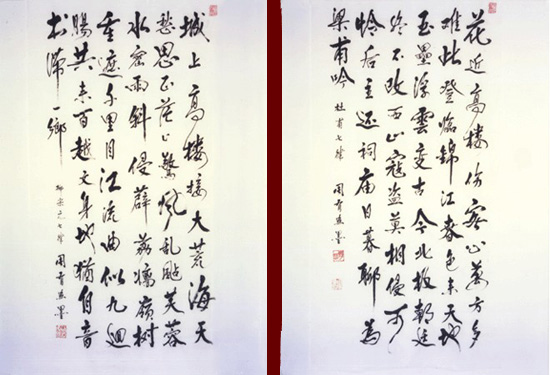 花近高楼伤客心萬方多
难此登临锦江春色来天地
玉壘浮雲变古今北极朝廷
终不改西山寇盗莫相侵可
怜后主还祠庙日暮聊为
梁甫吟 杜甫七律
城上高楼接大荒海天
愁思正茫〻驚风乱飐芙蓉
水密雨斜侵薜荔墙岭树
重遮千里目江流曲似九迴
肠共来百越文身地犹自音
书滞一乡 柳宗元七律